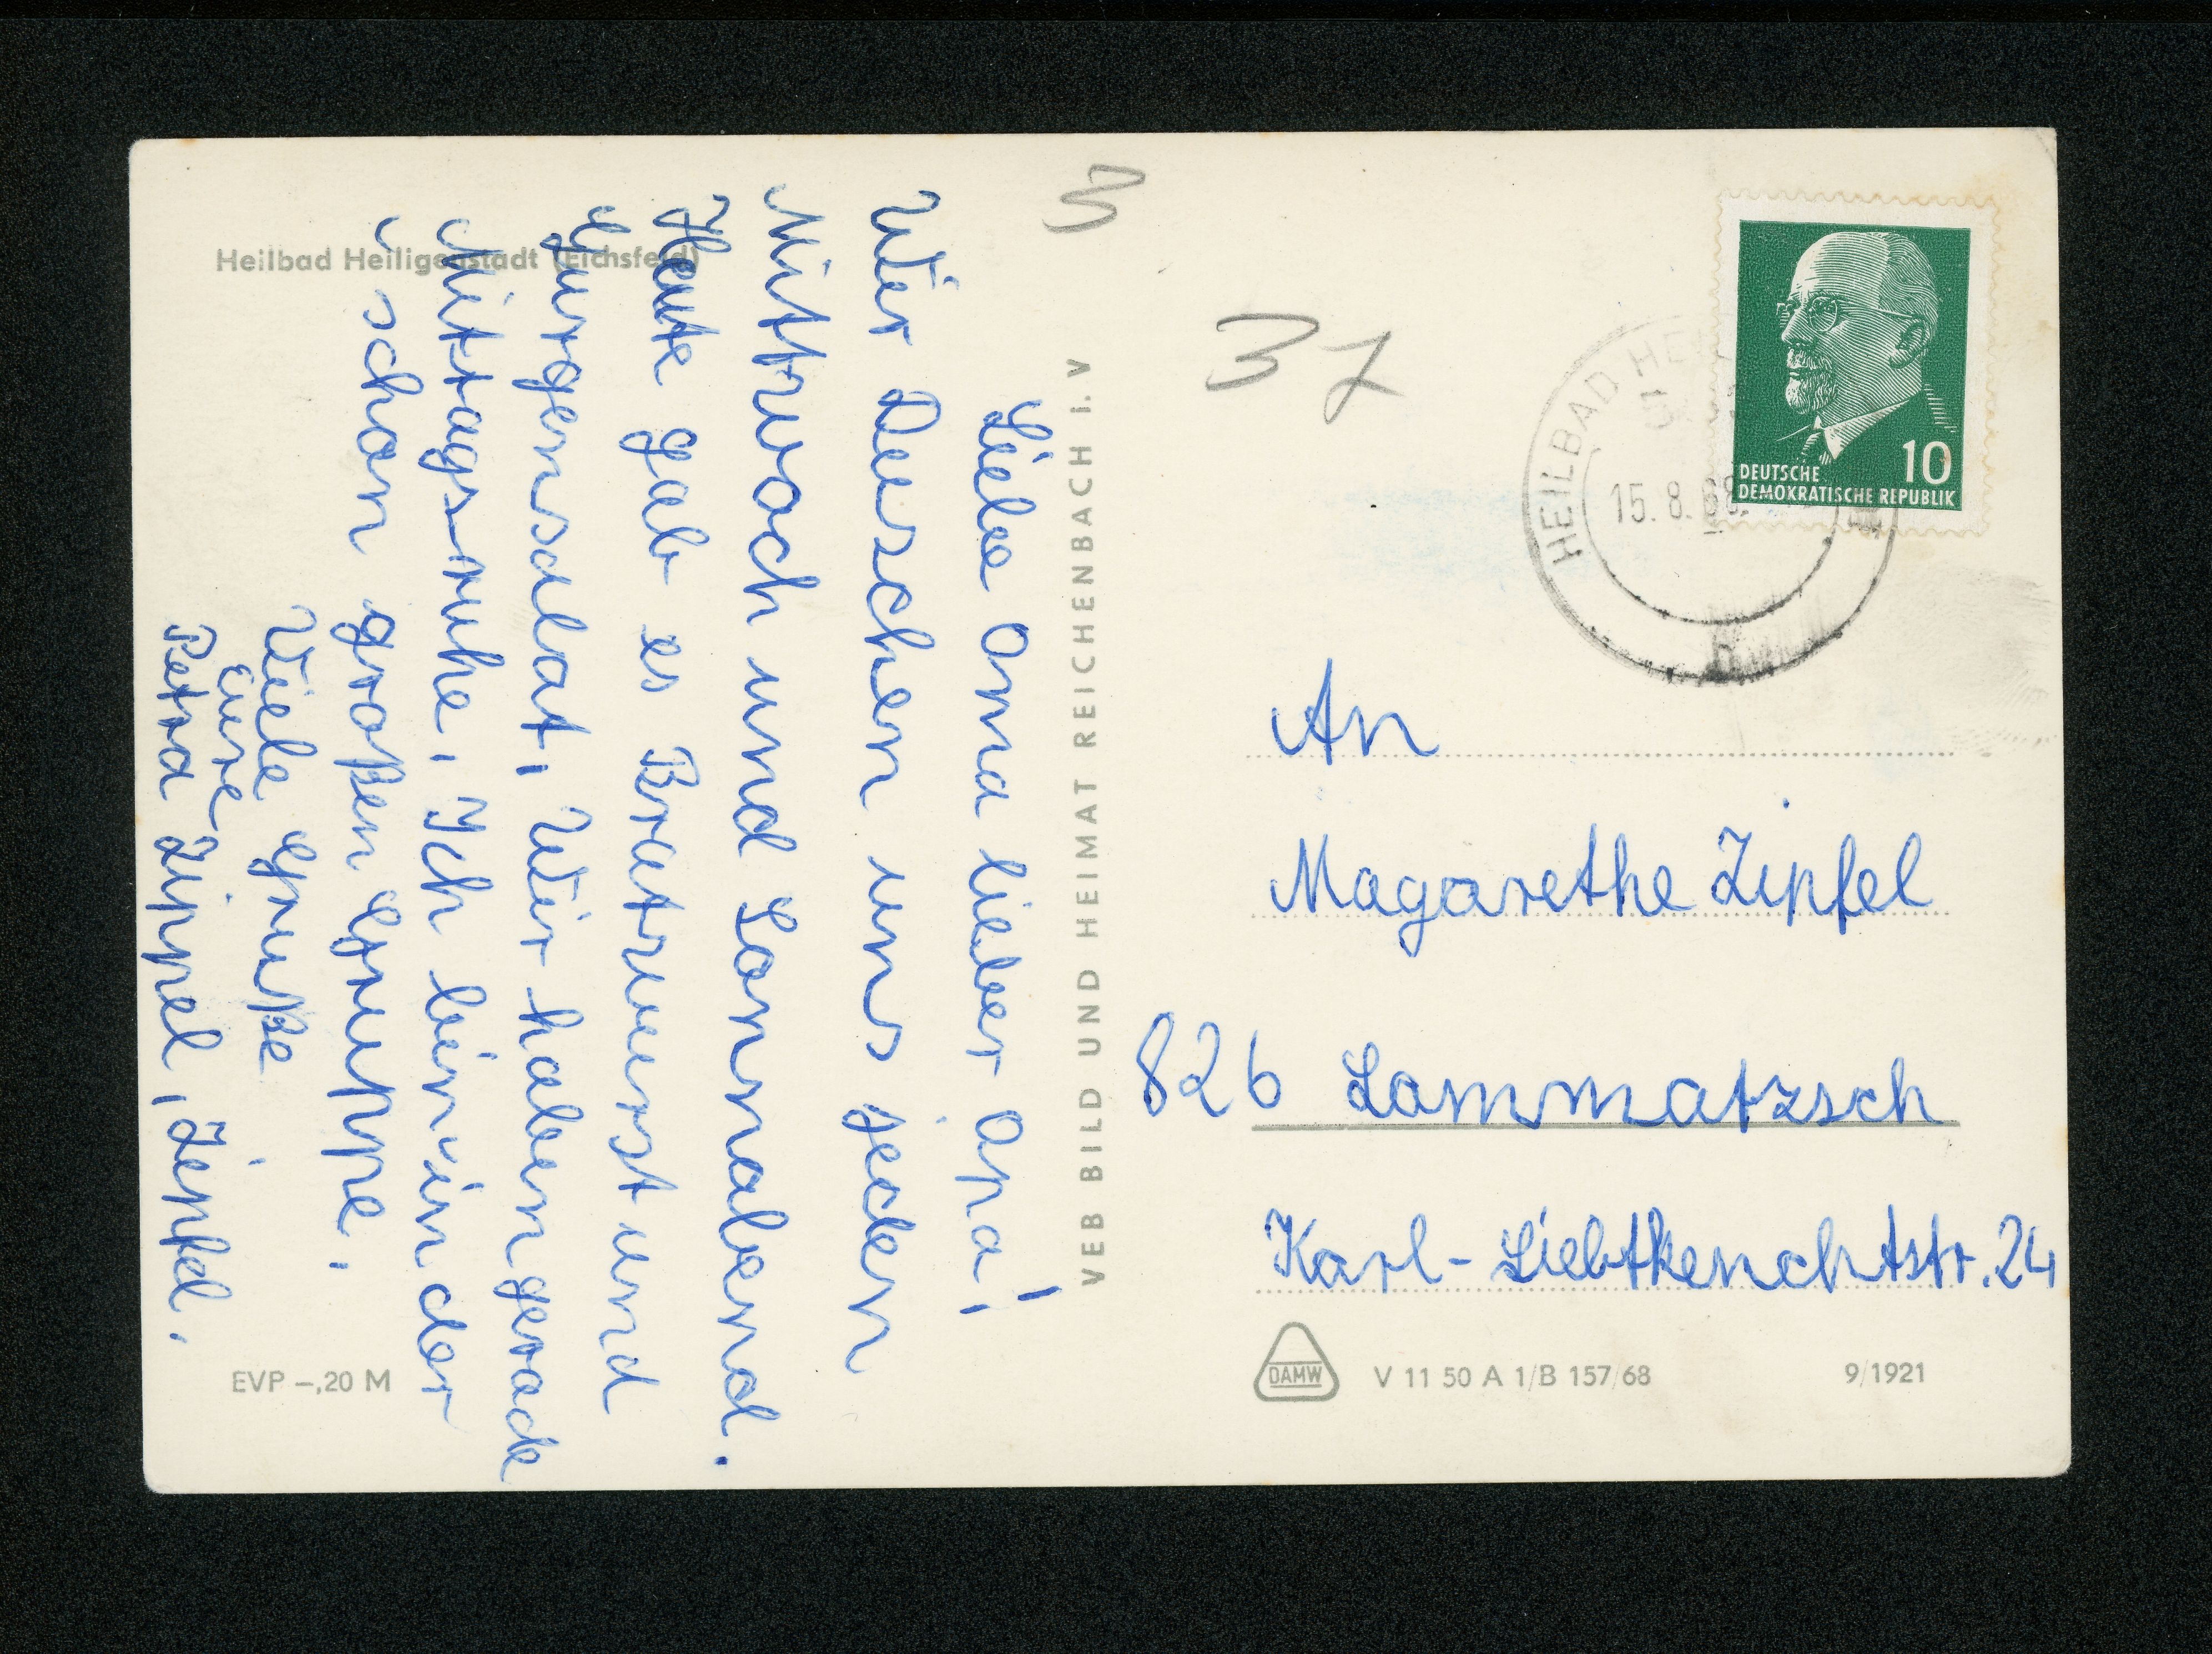 Heilbad Heiligenstadt (Eichsfeld)
Liebe Oma lieber Opa!
Wir Duschen uns jeden
Mittwoch und Sonnabend.
Heute gab es Bratwurst und
Gurgensalat, Wir haben gerade
Mittagsruhe, Ich bin in der
schon großen Gruppe,
Viele Gruße
eure
Petra Zippel, Zipfel.
EVP –,20 M
VEB BILD UND HEIMAT REICHENBACH I. V
3
37
HEILBAD
15.8.68
DEUTSCHE
DEMOKRATISCHE REPUBLIK
10
An
Magarethe Zipfel
826 Lommatzsch
Karl-Liebtkenchtstr. 24
DAMW
V 11 50 A 1/B 157/68
9/1921